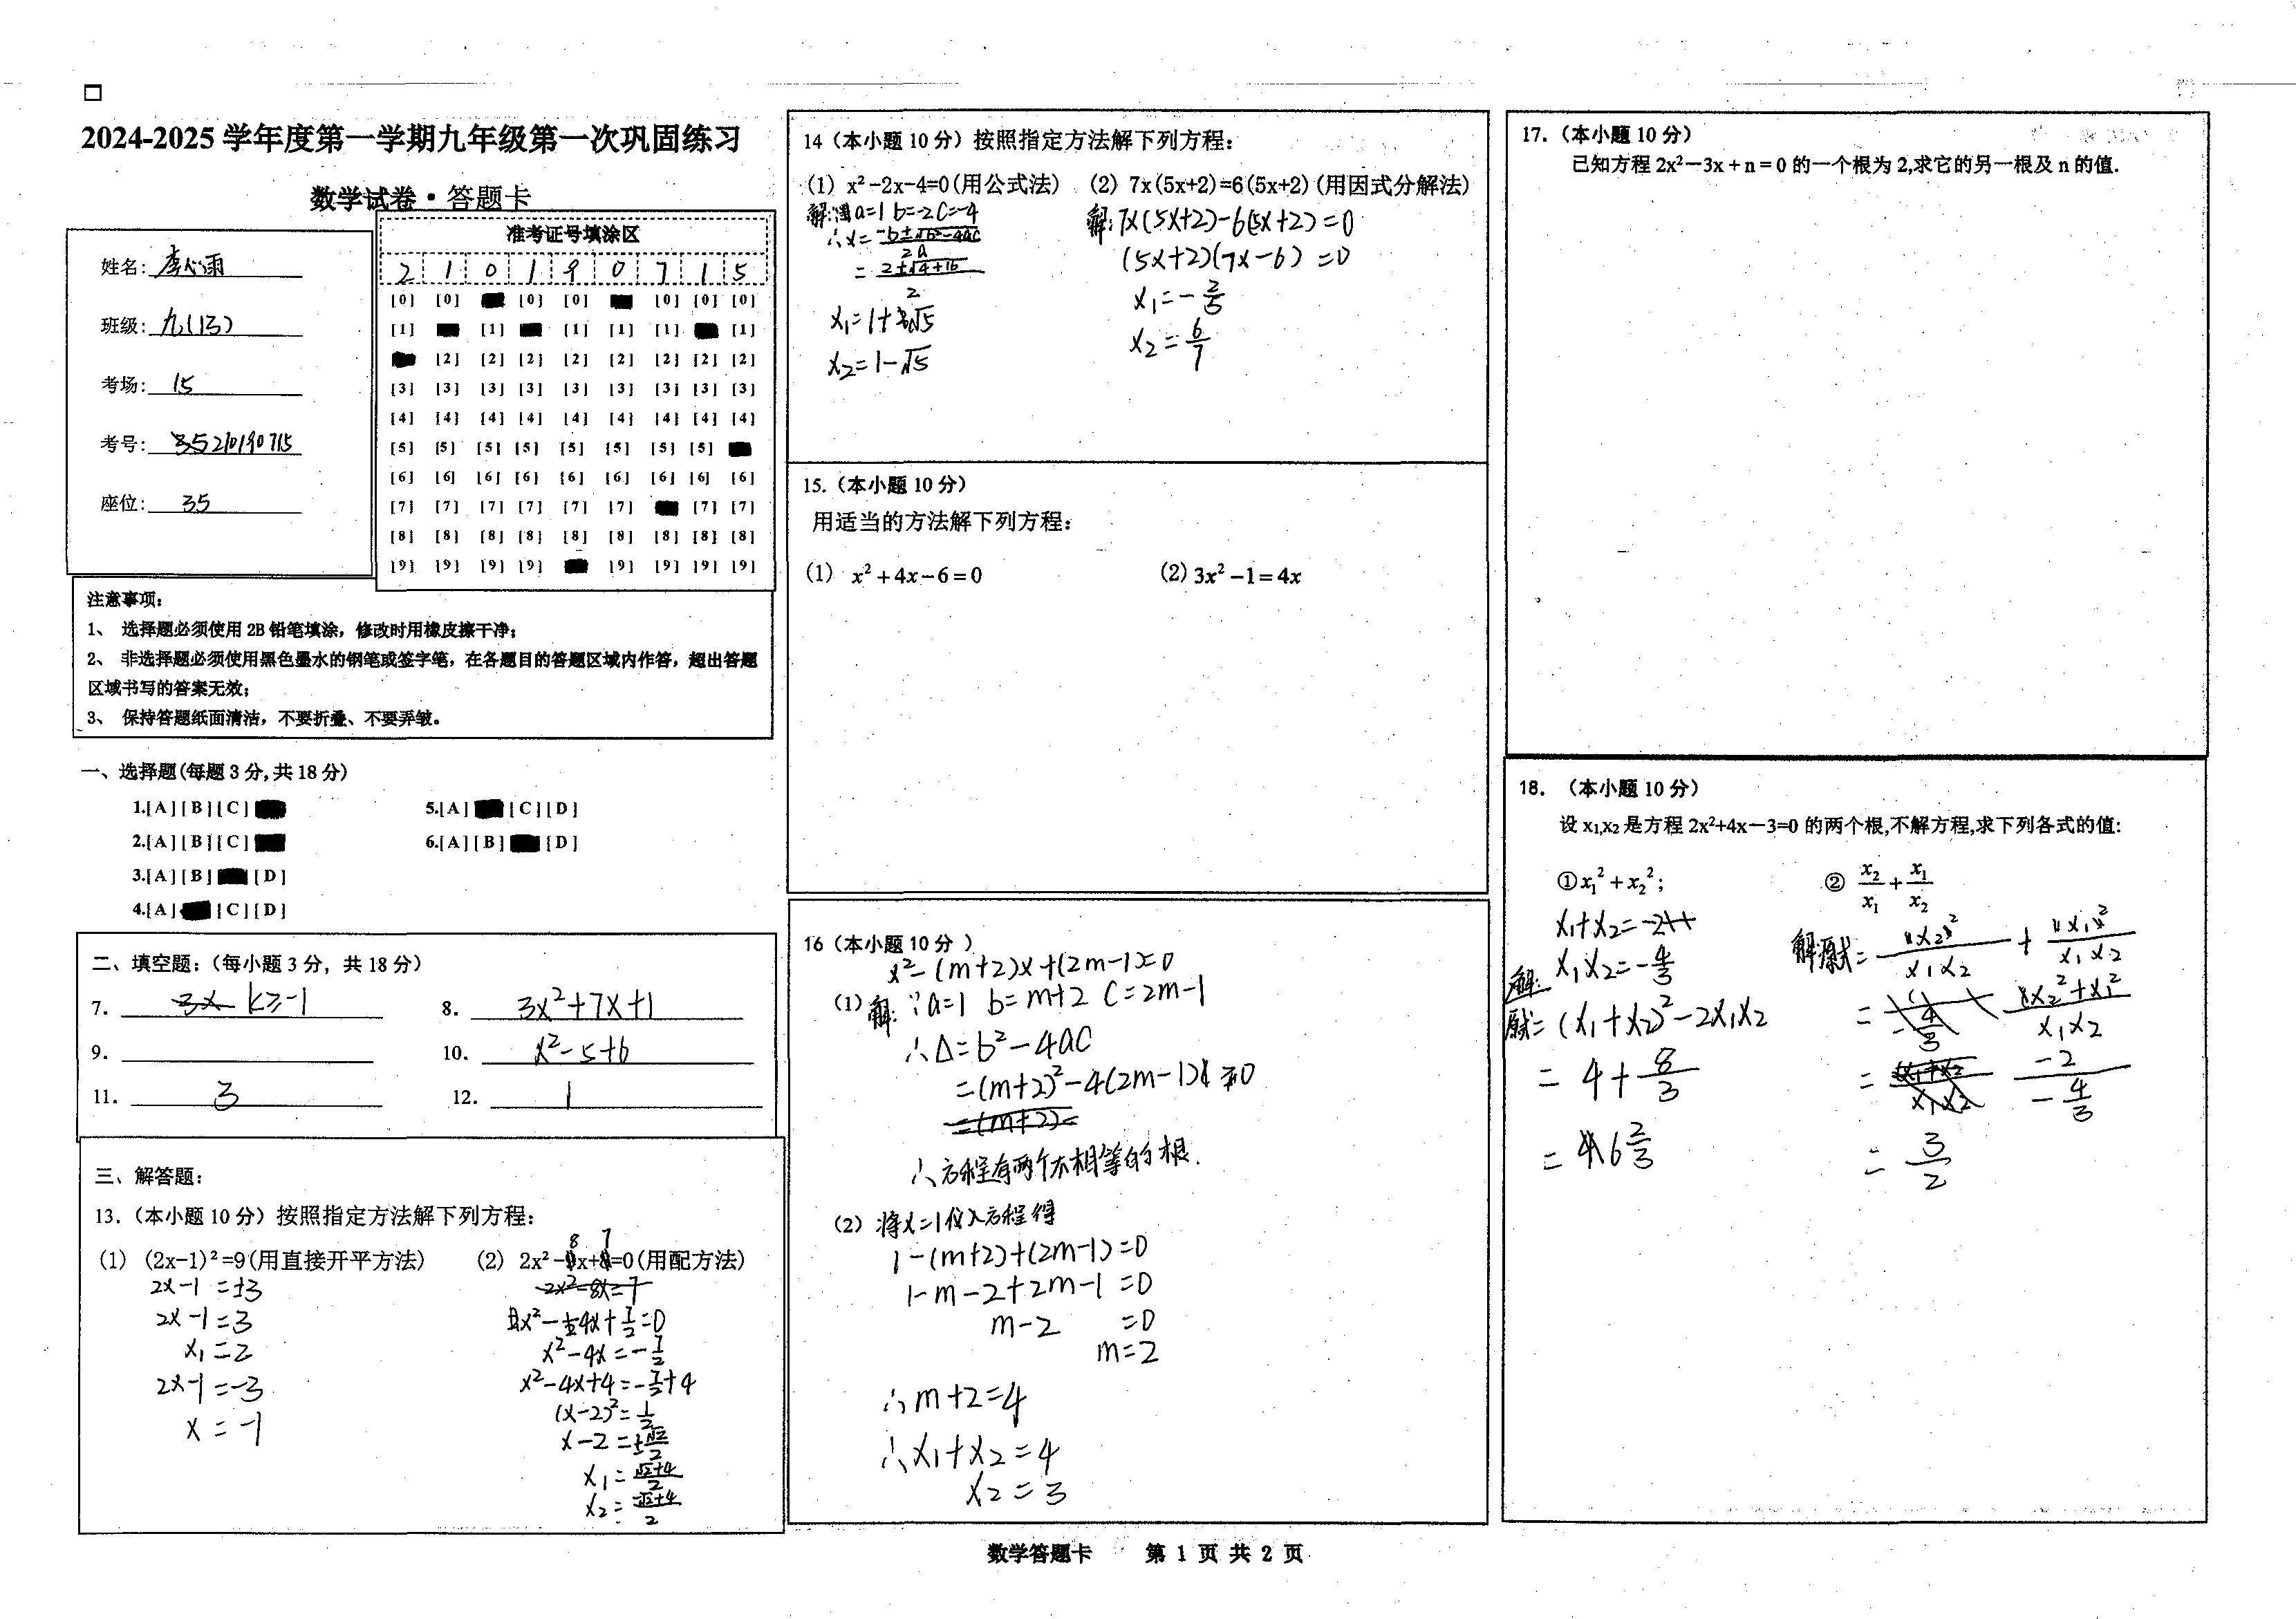 2024-2025 学年度第一学期九年级第一次巩固练习
数学试卷·答题卡
姓名: 李心雨
班级: 九(13)
考场: 15
考号: 35210190715
座位: 35
准考证号填涂区
2 1 0 1 9 0 7 1 5
[0] [0] [0] [0] [0] [0] [0]
[1] [1] [1] [1] [1] [1]
[2] [2] [2] [2] [2] [2] [2] [2]
[3] [3] [3] [3] [3] [3] [3] [3] [3]
[4] [4] [4] [4] [4] [4] [4] [4] [4]
[5] [5] [5] [5] [5] [5] [5] [5]
[6] [6] [6] [6] [6] [6] [6] [6] [6]
[7] [7] [7] [7] [7] [7] [7] [7]
[8] [8] [8] [8] [8] [8] [8] [8] [8]
[9] [9] [9] [9] [9] [9] [9] [9]
注意事项:
1、 选择题必须使用 2B 铅笔填涂,修改时用橡皮擦干净;
2、 非选择题必须使用黑色墨水的钢笔或签字笔,在各题目的答题区域内作答,超出答题
区域书写的答案无效;
3、 保持答题纸面清洁,不要折叠、不要弄皱。
一、选择题(每题 3 分,共 18 分)
1.[A][B][C]
2.[A][B][C]
3.[A][B] [D]
4.[A] [C][D]
5.[A] [C][D]
6.[A][B] [D]
二、填空题:(每小题 3 分,共 18 分)
7. k≥-1
8. 3x²+7x+1
9.
10. x²-5+6
11. 3
12. 1
三、解答题:
13.(本小题 10 分)按照指定方法解下列方程:
(1) (2x-1)²=9(用直接开平方法)
2x-1=±3
2x-1=3
x₁=2
2x-1=-3
x=-1
(2) 2x²-8x+7=0(用配方法)
2x²-8x=7
x²-4x+7/2=0
x²-4x=-7/2
x²-4x+4=-7/2+4
(x-2)²=1/2
x-2=±√2/2
x₁=(√2+4)/2
x₂=(-√2+4)/2
14(本小题 10 分)按照指定方法解下列方程:
(1) x²-2x-4=0(用公式法)
解:∵a=1 b=-2 c=-4
∴x=(-b±√b²-4ac)/2a
=(2±√4+16)/2
x₁=1+√5
x₂=1-√5
(2) 7x(5x+2)=6(5x+2)(用因式分解法)
解:7x(5x+2)-6(5x+2)=0
(5x+2)(7x-6)=0
x₁=-2/5
x₂=6/7
15.(本小题 10 分)
用适当的方法解下列方程:
(1) x²+4x-6=0
(2) 3x²-1=4x
16(本小题 10 分 )
x²-(m+2)x+(2m-1)=0
(1) 解:∵a=1 b=m+2 c=2m-1
∴Δ=b²-4ac
=(m+2)²-4(2m-1) ≥0
=(m+2)=
∴方程有两个不相等的根.
(2) 将x=1代入方程得
1-(m+2)+(2m-1)=0
1-m-2+2m-1=0
m-2 =0
m=2
∴m+2=4
∴x₁+x₂=4
x₂=3
17.(本小题 10 分)
已知方程 2x²-3x+n=0 的一个根为 2,求它的另一根及 n 的值.
18. (本小题 10 分)
设 x₁,x₂ 是方程 2x²+4x-3=0 的两个根,不解方程,求下列各式的值:
①x₁²+x₂²;
x₁+x₂=-2
解: x₁x₂=-4/3
原式=(x₁+x₂)²-2x₁x₂
=4+8/3
=6 2/3
② x₂/x₁+x₁/x₂
解:原式=x₂²/x₁x₂+x₁²/x₁x₂
=(x₂²+x₁²)/x₁x₂
=-2/(-4/3)
=3/2
数学答题卡 第 1 页 共 2 页